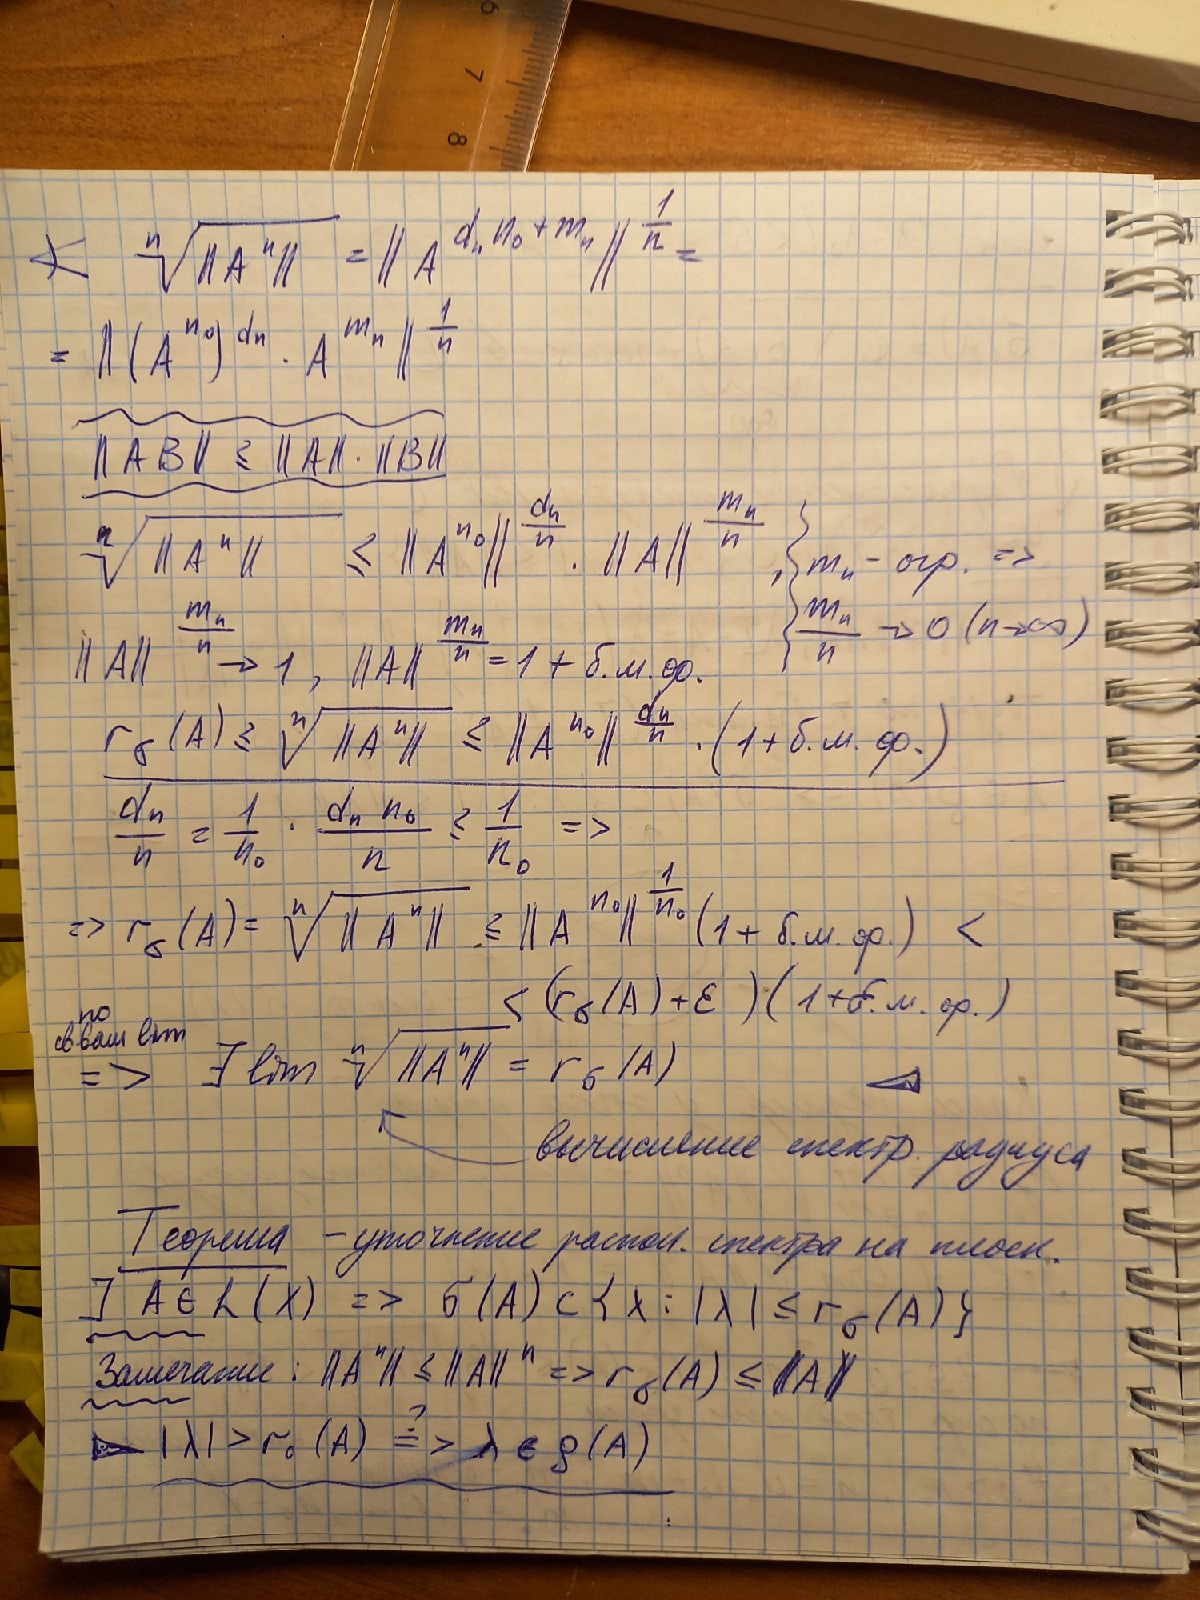 6
7
8
∢ ⁿ√‖Aⁿ‖ = ‖A^{d_n n_0 + m_n}‖^{1/n} =
= ‖(A^{n_0})^{d_n} · A^{m_n}‖^{1/n}
‖AB‖ ≤ ‖A‖·‖B‖
ⁿ√‖Aⁿ‖ ≤ ‖A^{n_0}‖^{d_n/n} · ‖A‖^{m_n/n}, } m_n - огр. =>
‖A‖^{m_n/n} → 1, ‖A‖^{m_n/n} = 1 + б.м.ф. } m_n/n → 0 (n→∞)
r_σ(A) ≤ ⁿ√‖Aⁿ‖ ≤ ‖A^{n_0}‖^{d_n/n} · (1 + б.м.ф.)
d_n/n = 1/n_0 · d_n n_0/n ≤ 1/n_0 =>
=> r_σ(A) = ⁿ√‖Aⁿ‖ ≤ ‖A^{n_0}‖^{1/n_0} (1 + б.м.ф.) <
< (r_σ(A) + ε)(1 + б.м.ф.)
по
св-вам lim
=> ∃ lim ⁿ√‖Aⁿ‖ = r_σ(A) ◁
вычисление спектр. радиуса
Теорема - уточнение распол. спектра на плоск.
] A ∈ L(X) => σ(A) ⊂ {λ : |λ| ≤ r_σ(A)}
Замечание: ‖Aⁿ‖ ≤ ‖A‖ⁿ => r_σ(A) ≤ ‖A‖
▷ |λ| > r_σ(A) ?=> λ ∈ ρ(A)